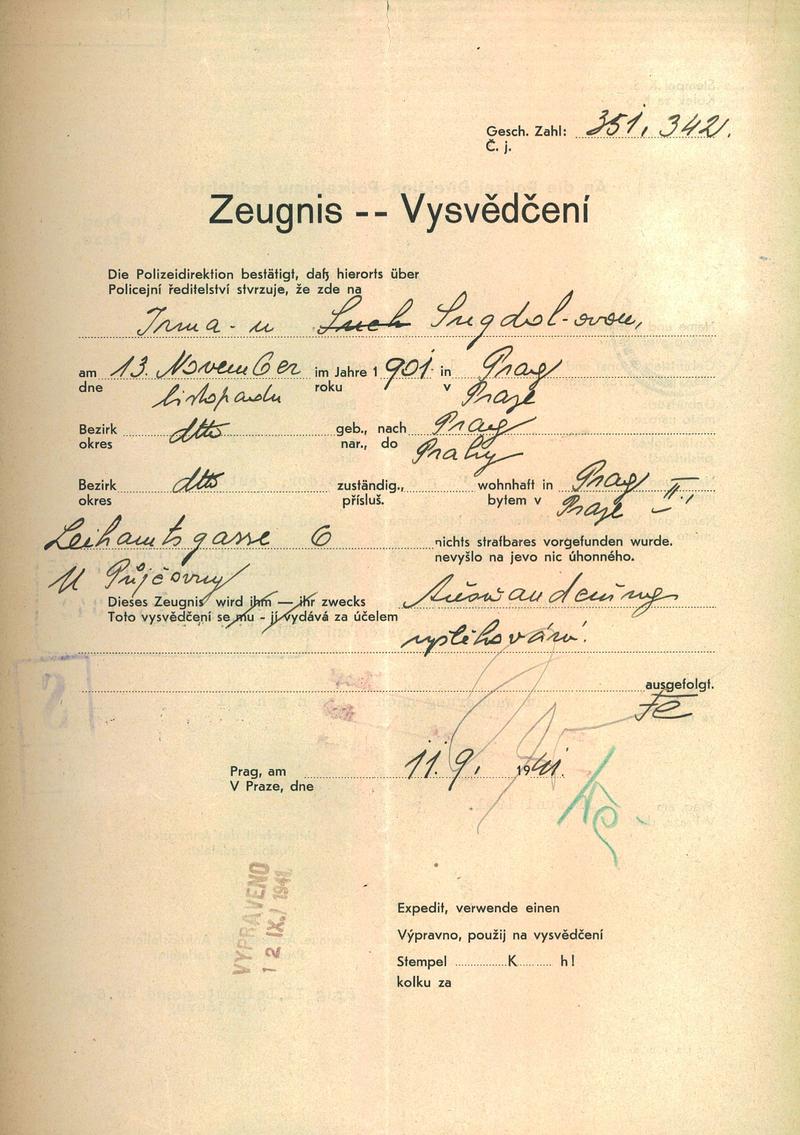 Gesch. Zahl: 351.342.
Č. j.
Zeugnis -- Vysvědčení
Die Polizeidirektion bestätigt, daß hierorts über
Policejní ředitelství stvrzuje, že zde na
Irma-u Such Sugdol-ovou,
am 13. November im Jahre 1 901 in Prag
dne listopadu roku v Praze
Bezirk dtto geb., nach Prag
okres nar., do Prahy
Bezirk dtto zuständig., wohnhaft in Prag II.,
okres přísluš. bytem v Praze
Leihamtsgasse 6 nichts strafbares vorgefunden wurde.
nevyšlo na jevo nic úhonného.
U Půjčovny
Dieses Zeugnis wird ihm — ihr zwecks Auswanderung
Toto vysvědčení se mu - jí vydává za účelem
vystěhování.
ausgefolgt.
Prag, am 11. 9. 1941.
V Praze, dne
VYPRAVENO
12 IX. 1941
Expedit, verwende einen
Výpravno, použij na vysvědčení
Stempel K h!
kolku za